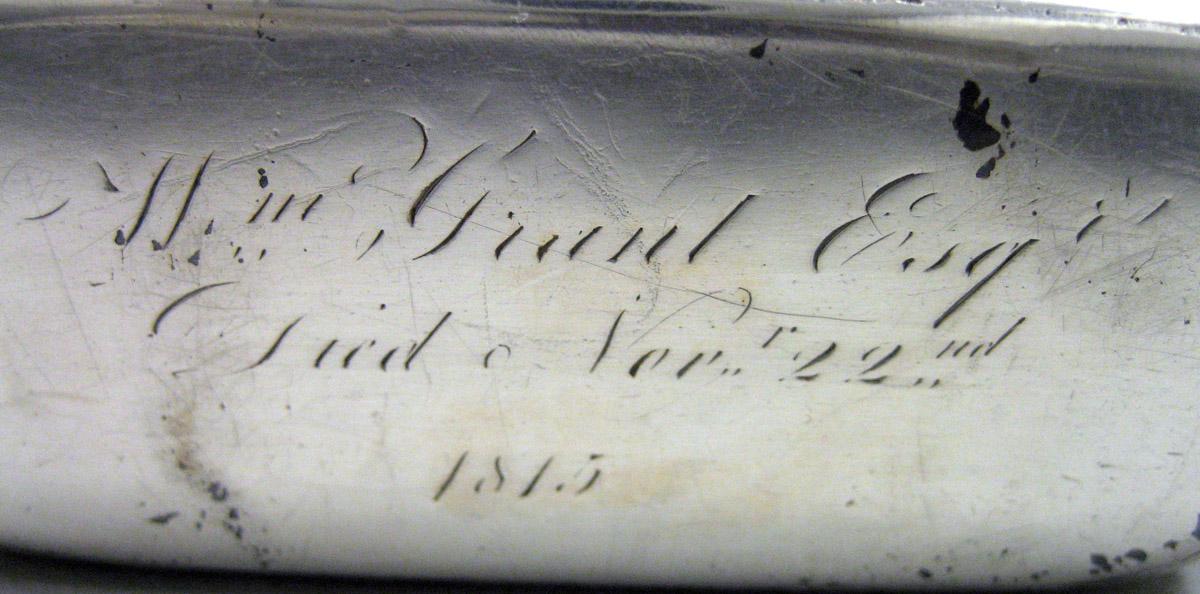 Wm Grant Esqr
Died Novr 22nd
1815